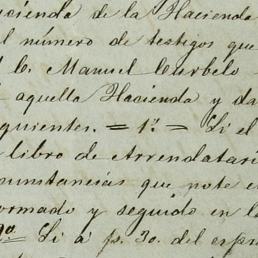 cienda de la Hacienda
l número de testigos que
l C. Manuel Curbelo
aquella Hacienda y da
quientes. = 1º. = Si el
libro de Arrendatari
cunstancias que note e
ormado y seguido en l
9º Si á fs. 30. del espr